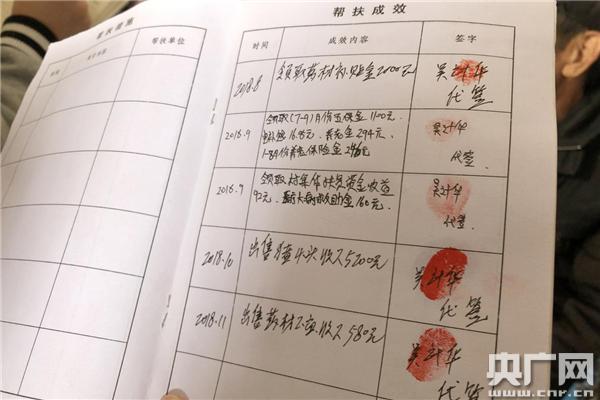 帮扶措施
帮扶单位
时间
帮扶成效
时间
成效内容
签字
2018.8
领取药材补贴金2000元
吴计华
代签
2018.9
领取(7-9)月份五保金1100元、
元、养老金294元、
1-8月份养老保险金
吴计华
代签
2018.9
领取村集体扶贫资金收益
救助金160元.
吴计华
代签
2018.10
出售猪 头收入5200元
吴计华
代签
2018.11
出售药材 收入580元
吴计华
代签
央广网
www.cnr.cn